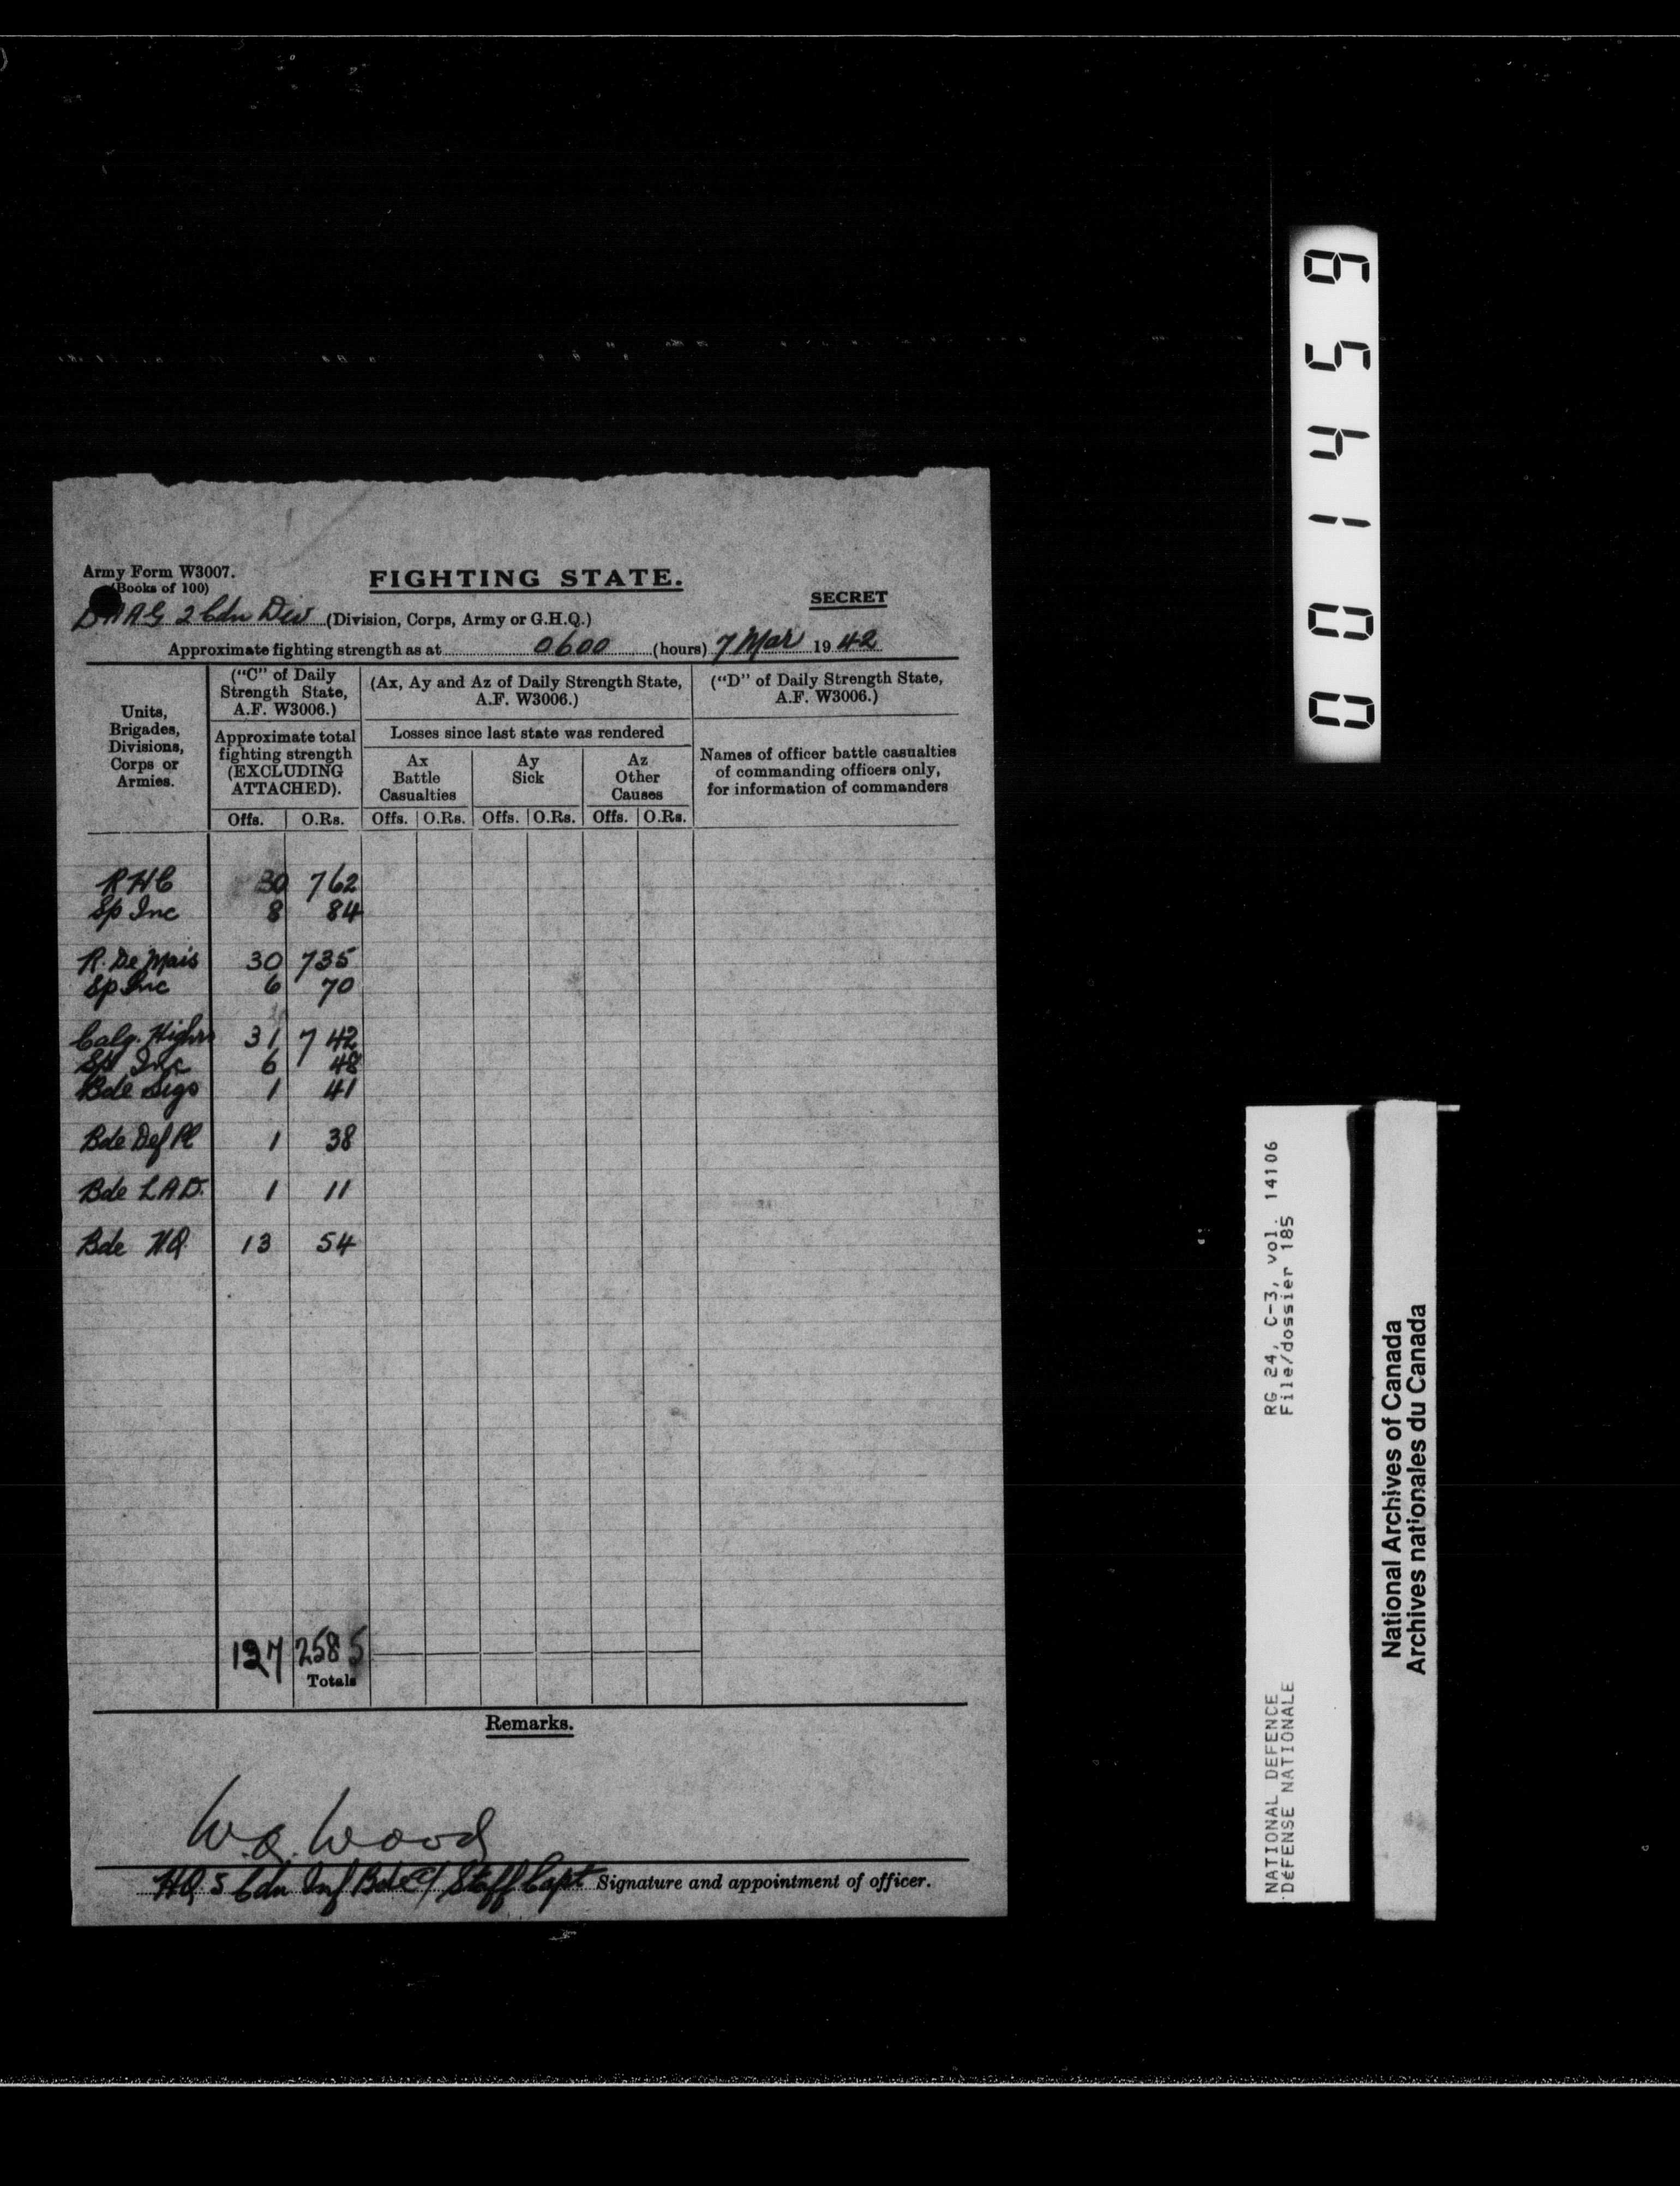 Army Form W3007.
(Books of 100)
FIGHTING STATE.
SECRET
DAAG 2 Cdn Div (Division, Corps, Army or G.H.Q.)
Approximate fighting strength as at 0600 (hours) 7 Mar 1942
Units, Brigades, Divisions, Corps or Armies.
("C" of Daily Strength State, A.F. W3006.)
Approximate total fighting strength (EXCLUDING ATTACHED).
(Ax, Ay and Az of Daily Strength State, A.F. W3006.)
Losses since last state was rendered
Ax Battle Casualties
Ay Sick
Az Other Causes
("D" of Daily Strength State, A.F. W3006.)
Names of officer battle casualties of commanding officers only, for information of commanders
Offs. O.Rs. Offs. O.Rs. Offs. O.Rs. Offs. O.Rs.
RHC 30 762
Sp Inc 8 84
R. De Mais 30 735
Sp Inc 6 70
Calg. Highrs 31 742
Sp Inc 6 48
Bde Sigs 1 41
Bde Def Pl 1 38
Bde LAD. 1 11
Bde HQ. 13 54
127 2585
Totals
Remarks.
W.A. Wood
HQ 5 Cdn Inf Bde a/ Staff Capt Signature and appointment of officer.
001459
RG 24, C-3, vol. 14106
File/dossier 185
NATIONAL DEFENCE
DÉFENSE NATIONALE
National Archives of Canada
Archives nationales du Canada